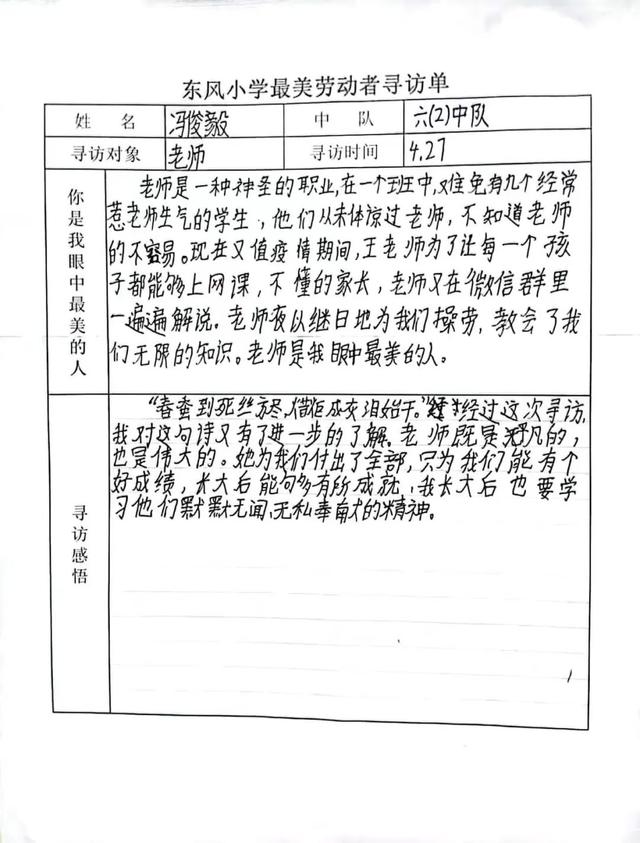 东风小学最美劳动者寻访单
姓 名 冯俊毅 中 队 六(2)中队
寻访对象 老师 寻访时间 4.27
你是我眼中最美的人
老师是一种神圣的职业,在一个班中,难免有几个经常
惹老师生气的学生,他们从未体谅过老师,不知道老师
的不容易。现在又值疫情期间,王老师为了让每一个孩
子都能够上网课,不懂的家长,老师又在微信群里
一遍遍解说。老师夜以继日地为我们操劳,教会了我
们无限的知识。老师是我眼中最美的人。
寻访感悟
“春蚕到死丝方尽,蜡炬成灰泪始干。”经过这次寻访,
我对这句诗又有了进一步的了解。老师既是平凡的,
也是伟大的。她为我们付出了全部,只为我们能有个
好成绩,长大后能够有所成就,我长大后也要学
习他们默默无闻、无私奉献的精神。